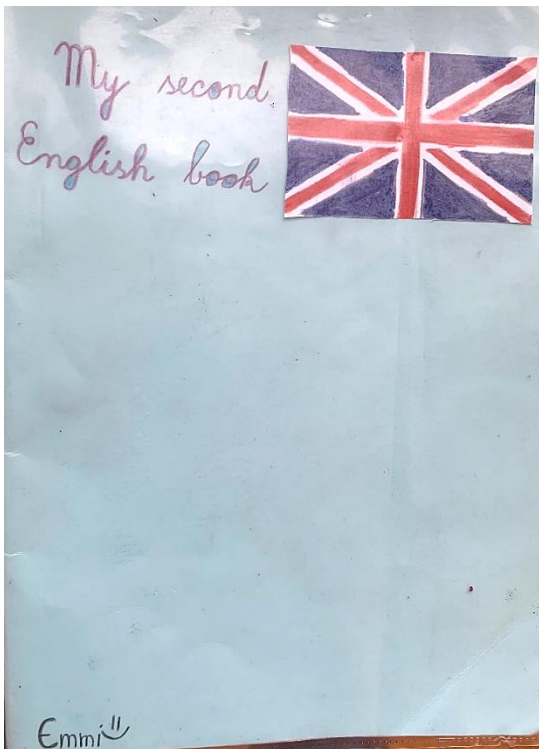 My second
English book
Emmi